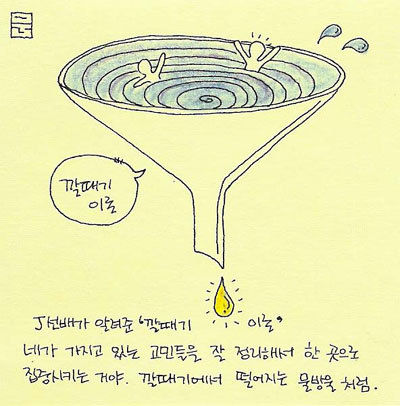 깔때기
이론
J선배가 알려준 '깔때기 이론'
네가 가지고 있는 고민들을 잘 정리해서 한 곳으로
집중시키는 거야. 깔때기에서 떨어지는 물방울 처럼.